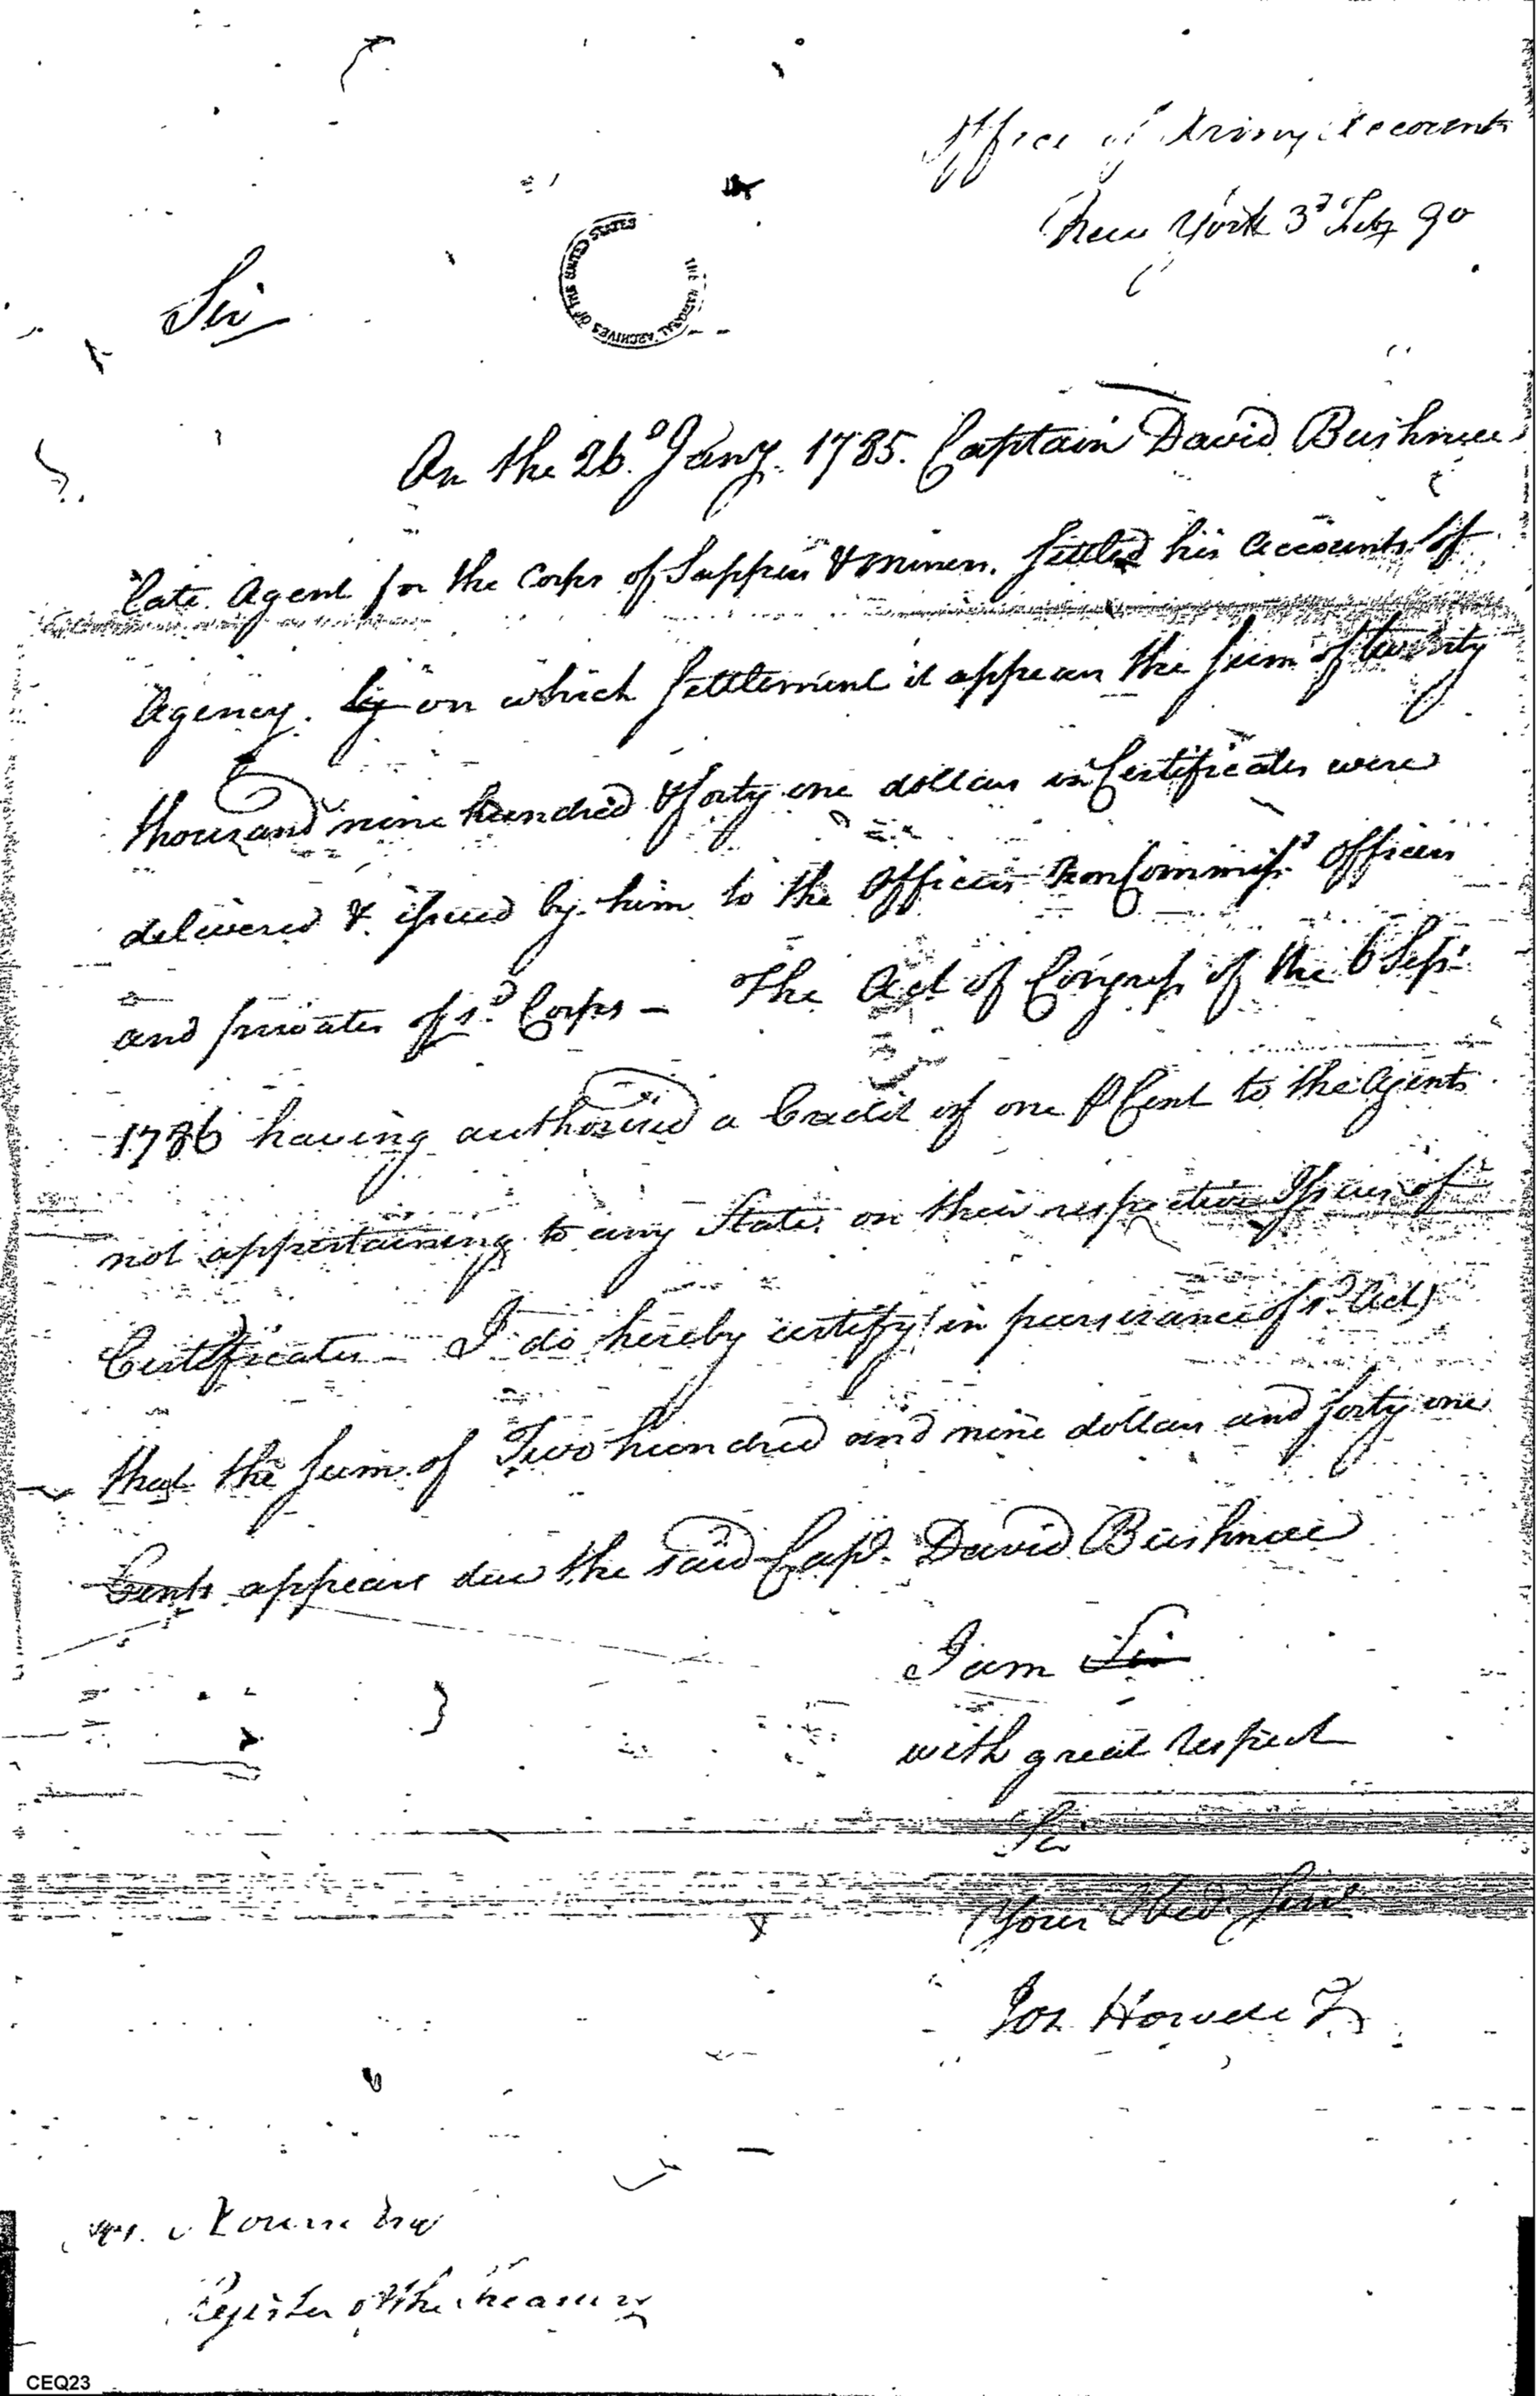 Office of Army Accounts
New York 3d Feby 90
THE NATIONAL ARCHIVES OF THE UNITED STATES
Sir
On the 26.o Jany. 1785. Captain David Bushnell
late Agent for the Corps of Sappers & Miners. Settled his Accounts of
Agency. by on which Settlement it appears the sum of twenty
thousand nine hundred & forty one dollars in Certificates were
delivered & issued by him to the Officers nonCommissd. Officers
and privates of sd. Corps – The Act of Congress of the 6 Sepr.
1786 having authorised a Credit of one P Cent to the Agents
not appertaining to any State on their respective Issues of
Certificates – I do hereby certify (in pursuance of sd. Act)
that the sum of Two hundred and nine dollars and forty one
Cents appears due the said Capt. David Bushnell
I am Sir
with great respect
Sir
Your Obed. Servt
Jos. Howell Jr
Nourse Esqr
Register of the Treasury
CEQ23